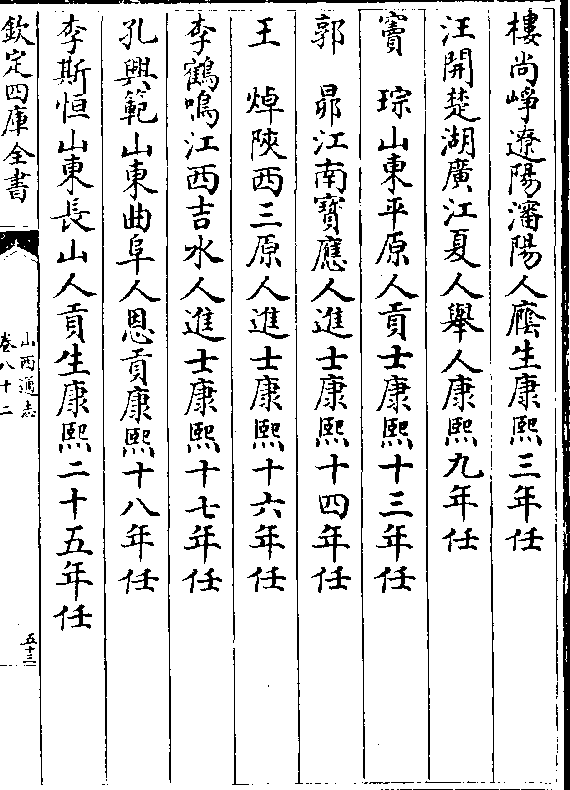 樓尚崢遼陽瀋陽人廕生康熙三年任
汪開楚湖廣江夏人舉人康熙九年任
竇　琮山東平原人貢士康熙十三年任
郭　昴江南寶應人進士康熙十四年任
王　焯陝西三原人進士康熙十六年任
李鶴鳴江西吉水人進士康熙十七年任
孔興範山東曲阜人恩貢康熙十八年任
李斯恒山東長山人貢生康熙二十五年任
欽定四庫全書
山西通志
卷八十二
五十三